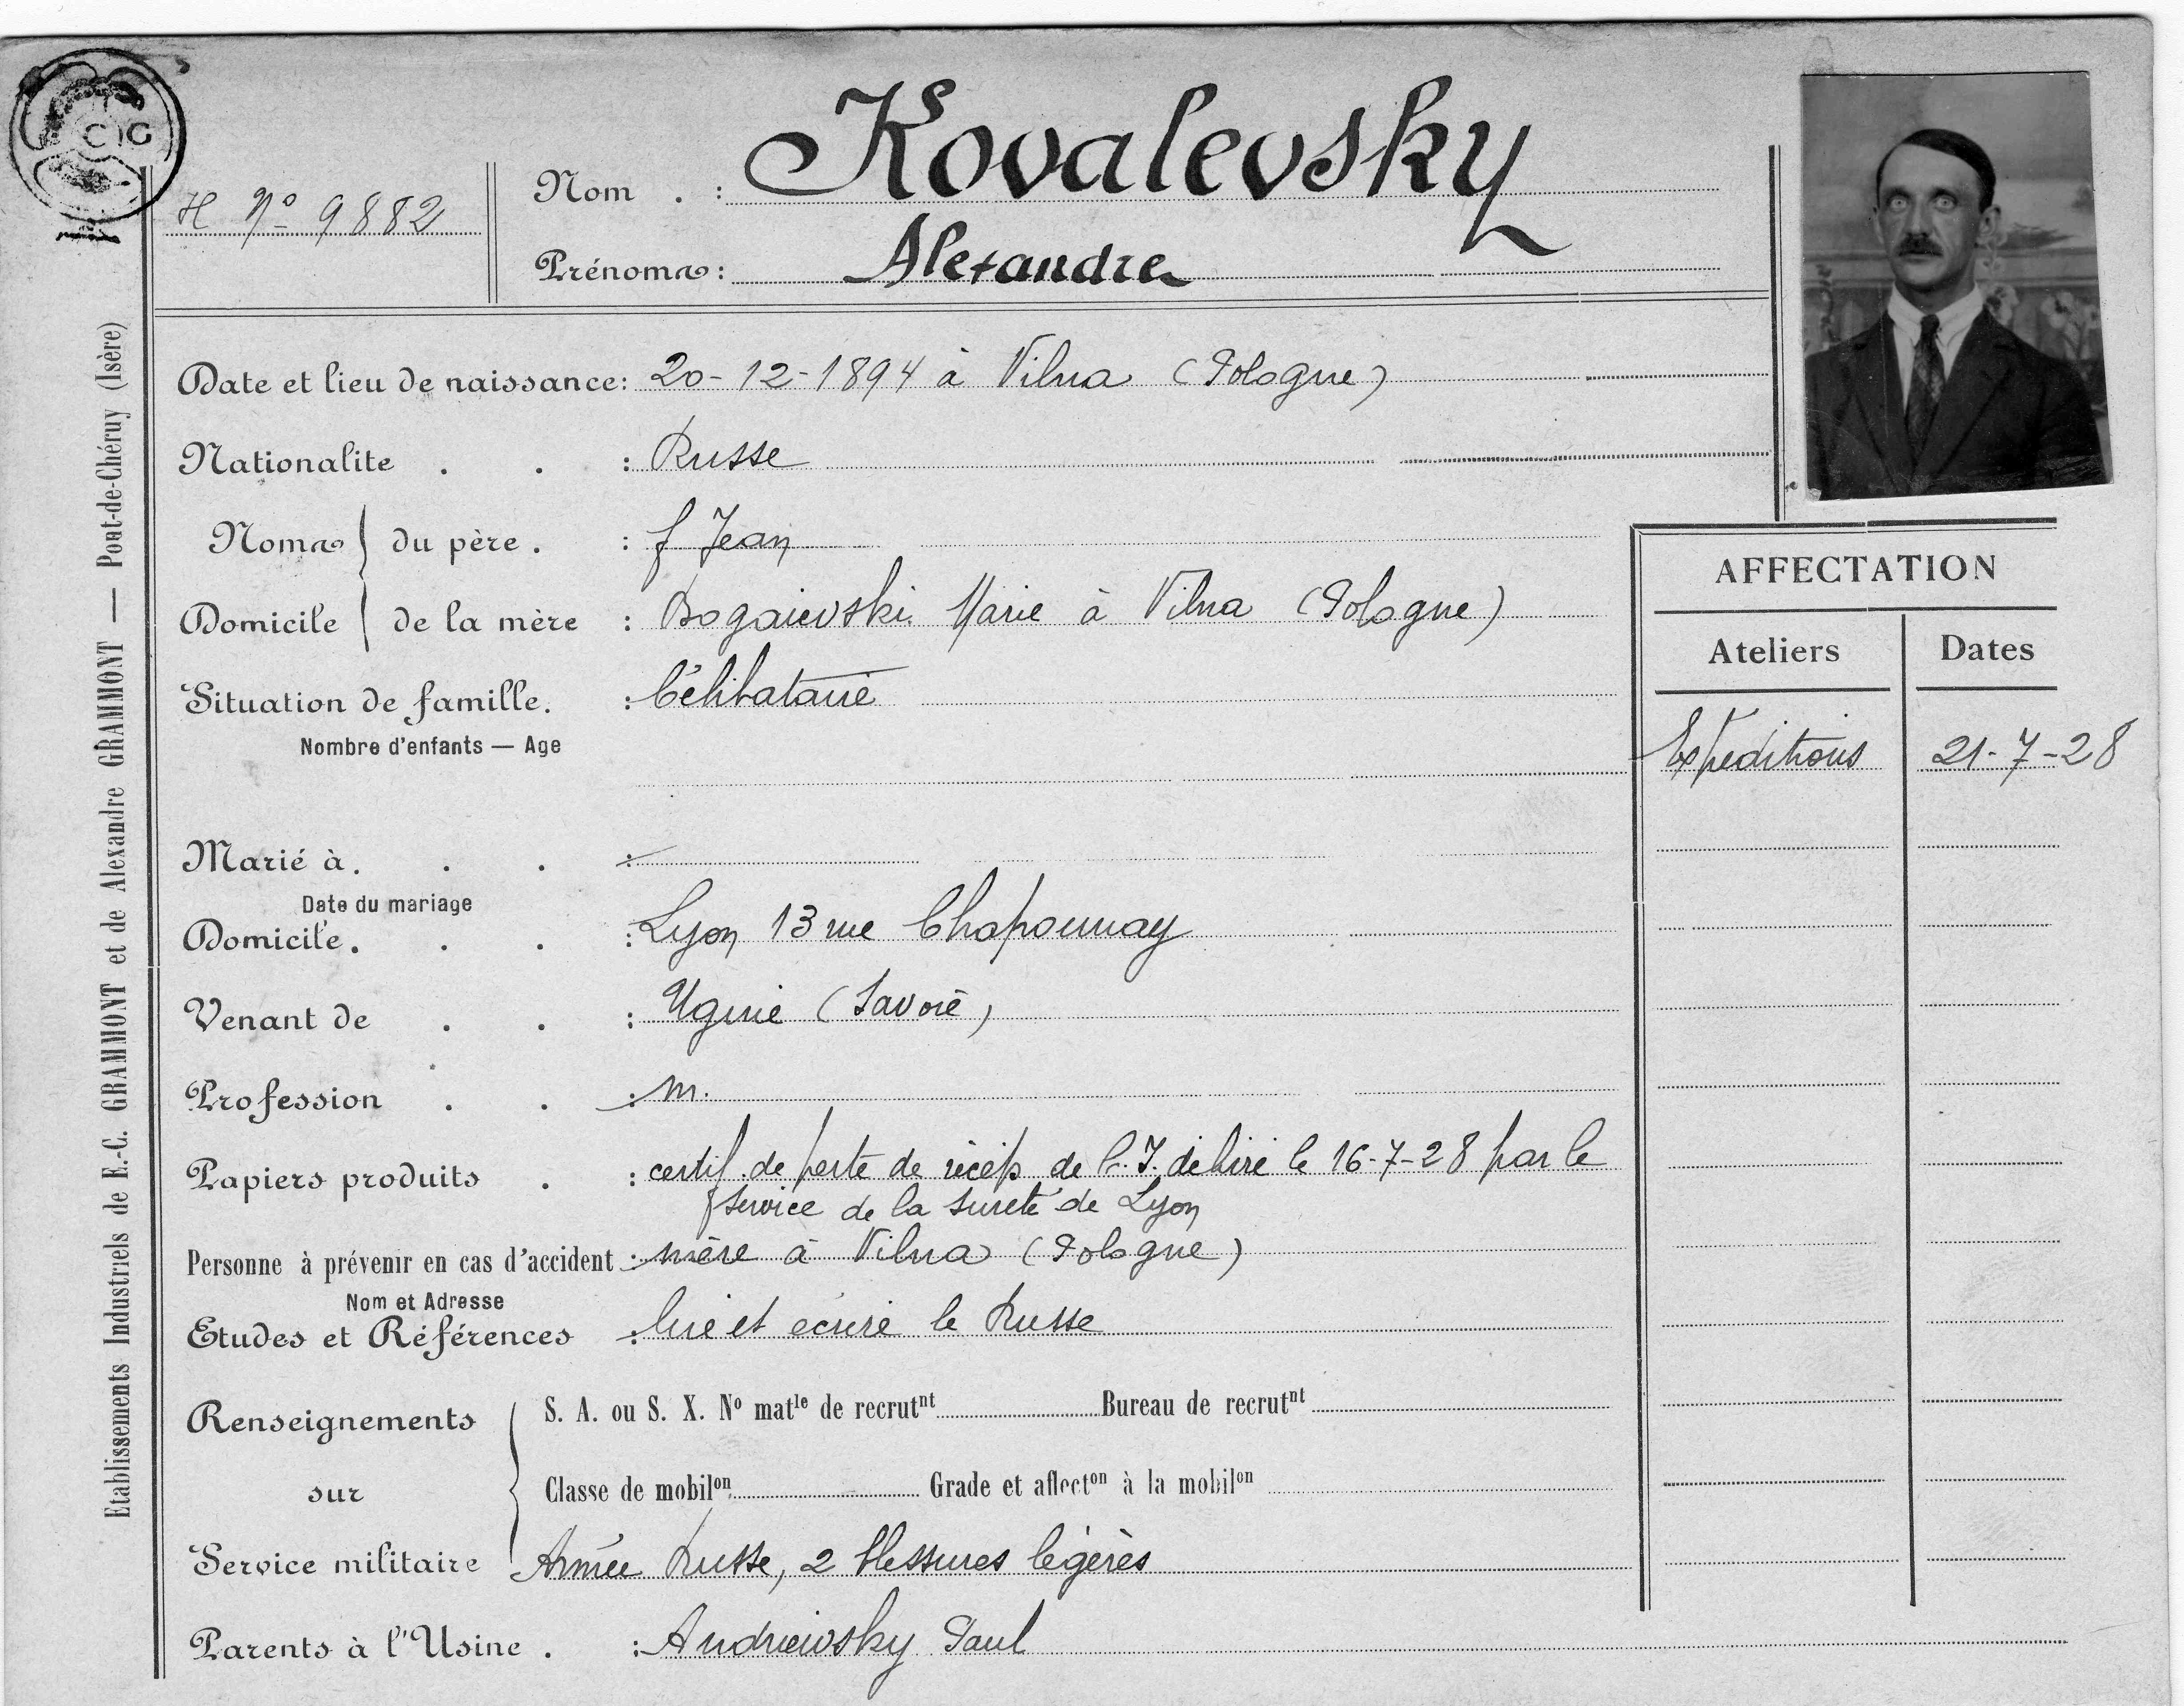 CIG
H Nº 9882
Nom . : Kovalevsky
Prénoms : Alexandre
Date et lieu de naissance : 20-12-1894 à Vilna (Pologne)
Nationalite . . : Russe
Noms du père . : f Jean
Domicile de la mère : Bogaievski Marie à Vilna (Pologne)
Situation de famille. : Célibataire
Nombre d'enfants — Age
Marié à. . . :
Date du mariage
Domicile. . . : Lyon 13 rue Chaponnay
Venant de . . : Ugine (Savoie)
Profession . . : m.
Papiers produits . : certif. de perte de récép. de C.I. délivré le 16-7-28 par le
service de la sureté de Lyon
Personne à prévenir en cas d'accident : mère à Vilna (Pologne)
Nom et Adresse
Etudes et Références : lire et écrire le Russe
Renseignements sur Service militaire
S. A. ou S. X. Nº matle de recrutnt Bureau de recrutnt
Classe de mobilon Grade et affecton à la mobilon
Armée Russe, 2 blessures légères
Parents à l'Usine . : Andrievsky Paul
AFFECTATION
Ateliers Dates
Expéditions 21-7-28
Etablissements Industriels de E.-C. GRAMMONT et de Alexandre GRAMMONT — Pont-de-Chéruy (Isère)